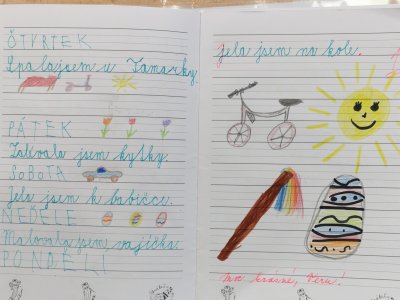 ČTVRTEK
Spala jsem u Tamarky.
PÁTEK
Zalévala jsem kytky.
SOBOTA
Jela jsem k babičce.
NEDĚLE
Malovala jsem vajíčka.
PONDĚLÍ
Jela jsem na kole.
Moc krásné, Věru!